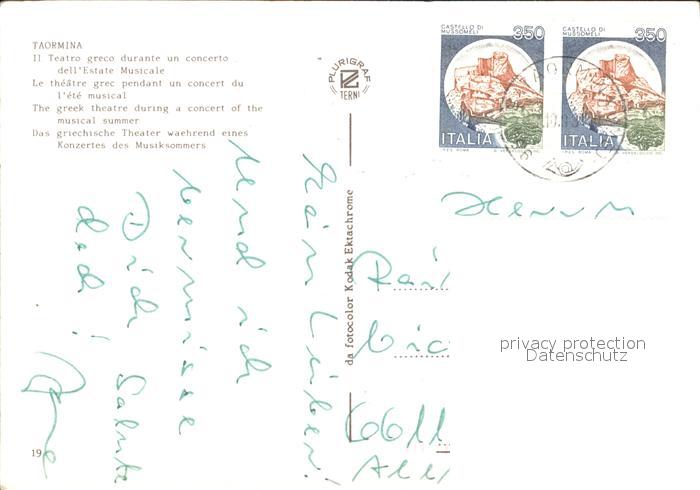 TAORMINA
Il Teatro greco durante un concerto
dell'Estate Musicale
Le théâtre grec pendant un concert du
l'été musical
The greek theatre during a concert of the
musical summer
Das griechische Theater waehrend eines
Konzertes des Musiksommers
PLURIGRAF
TERNI
da fotocolor Kodak Ektachrome
CASTELLO DI
MUSSOMELI
350
ITALIA
CASTELLO DI
MUSSOMELI
350
ITALIA
Mein Lieber!
Und ich
vermisse
Dich
doch!
Salute
Herrn
privacy protection
Datenschutz
19